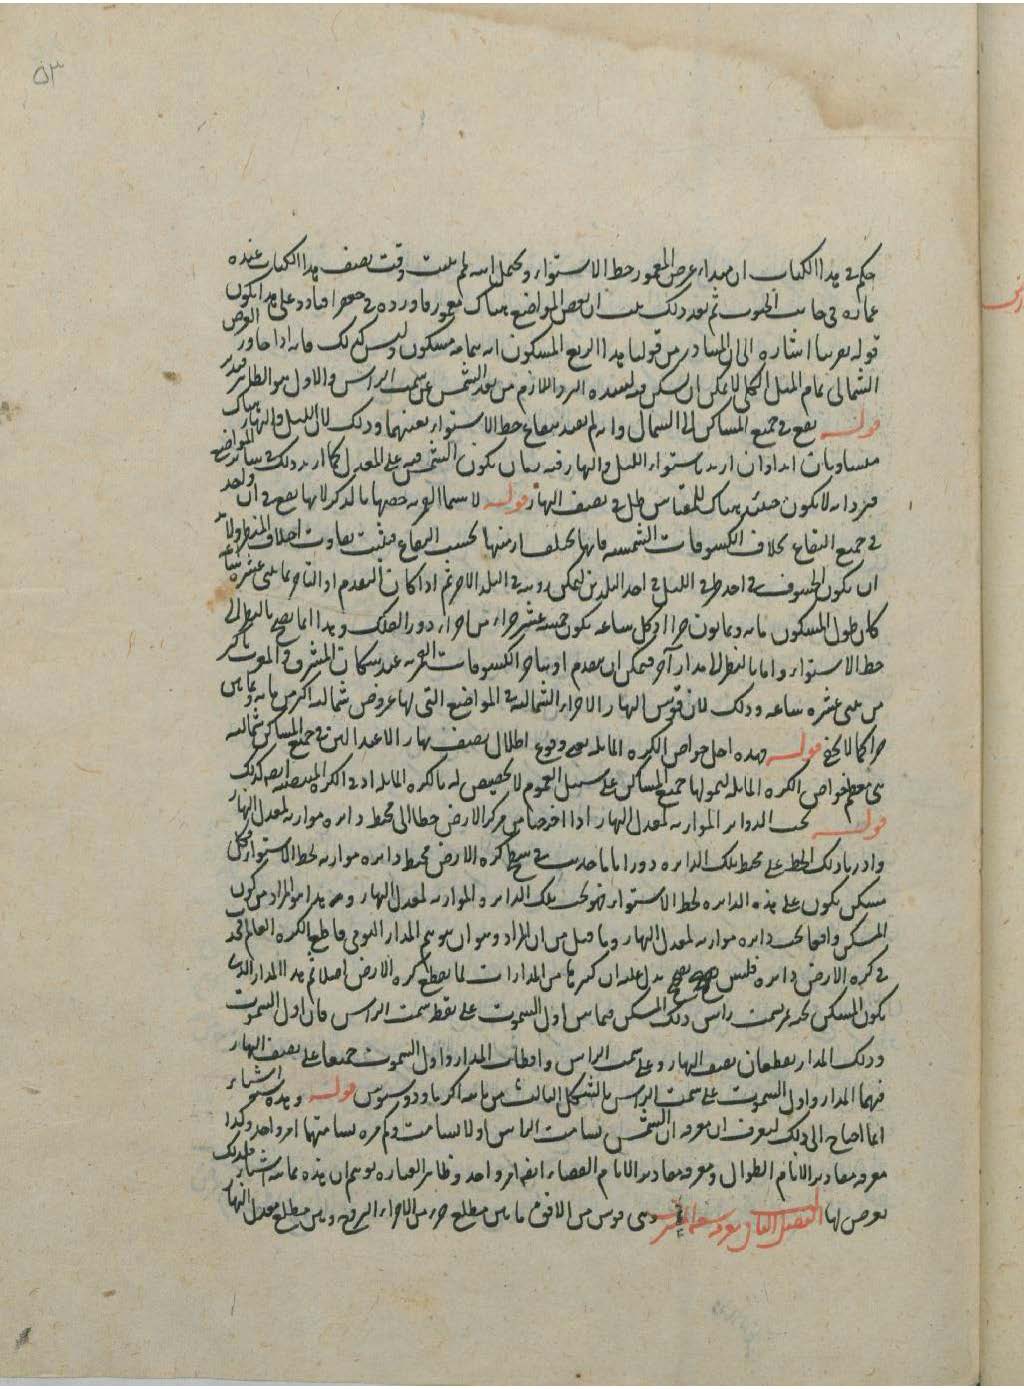 ٥٣
حكم في هذا الكتاب ان مبداء عرض المعمور خط الاستواء ويحتمل انه لم يثبت وقت تصنيف هذا الكتاب عنده
عمارة في جانب الجنوب ثم بعد ذلك ثبت ان بعض المواضع هناك معمور فاورده في جغرافيا وعلى هذا يكون
قوله تقريبا اشارة الى ان المتبادر من قولنا هذا الربع المسكون انه بتمامه مسكون وليس كذلك فانه اذا جاوز العرض
الشمالي تمام الميل الكلي لا يمكن ان يسكن فيه لشدة البرد اللازم من بعد الشمس عن سمت الراس والاول هو الظاهر
قوله يقع في جميع المساكن الى الشمال وان لم يقيد ببقاع خط الاستواء بعينها وذلك لان الليل والنهار هناك
متساويان ابدا وان اريد باستواء الليل والنهار فيه بان يكون الشمس فيه على المعدل كما اريد ذلك في سائر المواضع
فيرد انه لا يكون حينئذ هناك للمقياس ظل في نصف النهار قوله لا سيما القمرية خصها بالذكر لانها يقع في آن واحد
في جميع البقاع بخلاف الكسوفات الشمسية فانها يختلف ازمنتها بحسب البقاع فيثبت بتفاوت اختلاف المنظر ولا
ان يكون الخسوف في احد طرفي الليل في احد البلدين ليمكن رويته في البلد الآخر ثم اذا كان التقدم او التاخر باثنتى عشرة ساعة
كان طول المسكون مائة وثمانون جزا اذ كل ساعة يكون خمسة عشر جزاء من اجزاء دور الفلك وهذا انما يصح بالنظر الى
خط الاستواء واما بالنظر الى مدار آخر فيمكن ان يتقدم او يتاخر الكسوفات القمرية عند سكان المشرق والمغرب باكثر
من اثنتى عشرة ساعة وذلك لان قوس النهار الاجزاء الشمالية في المواضع التي لها عروض شمالية اكثر من مائة وثمانين
جزا كما لا يخفى قوله فهذه احد خواص الكرة المائلة يعني وقوع اظلال نصف نهار الاعتدالين في جميع المساكن شمالية
هي معظم خواص الكرة المائلة لشمولها جميع المساكن على سبيل العموم لا تخصيص له بالكرة المائلة اذ في الكرة المنتصبة ايضا كذلك
قوله تحت الدوائر الموازية لمعدل النهار اذا اخرجنا من مركز الارض خطا الى محيط دائرة موازية لمعدل النهار
وادرنا ذلك الخط على محيط تلك الدائرة دورا تاما حدث في سطح كرة الارض محيط دائرة موازية لخط الاستواء فكل
مسكن يكون على هذه الدائرة لخط الاستواء فهو تحت تلك الدائرة والموازية لمعدل النهار وهذا هو المراد من كون
المسكن واقعا تحت دائرة موازية لمعدل النهار وما قيل من ان المراد وهو ان يتوهم المدار اليومي قاطعا لكرة العالم فيحدث
في كرة الارض دائرة فليس بصحيح يدل عليه ان كثيرا من المدارات لا يقطع كرة الارض اصلا ثم هذا المدار الذي
يكون المسكن تحته يمر بسمت راس ذلك المسكن فيماس اول السموت على نقطة سمت الراس فان اول السموت
وذلك المدار يقطعان نصف النهار وعلى سمت الراس واقطاب المدار واول السموت جميعا على نصف النهار
فهما المدار واول السموت على سمت الراس بالشكل الثالث من ثانية اكر ثاوذوسيوس قوله وهذه اشياء
انما احتاج الى ذلك ليعرف ان معرفة ان الشمس تسامت الراس او لا تسامت وكم مرة تسامتها امر واحد وكذا
معرفة مقادير الايام الطوال ومعرفة مقادير الايام القصار ايضا امر واحد وظاهر العبارة يوهم ان هذه ثمانية اشياء فلذلك
تعرض لها الفصل الثاني في معرفة سعة المشرق وهي قوس من الافق ما بين مطلع جزء من الاجزاء البروج وبين مطلع معدل النهار